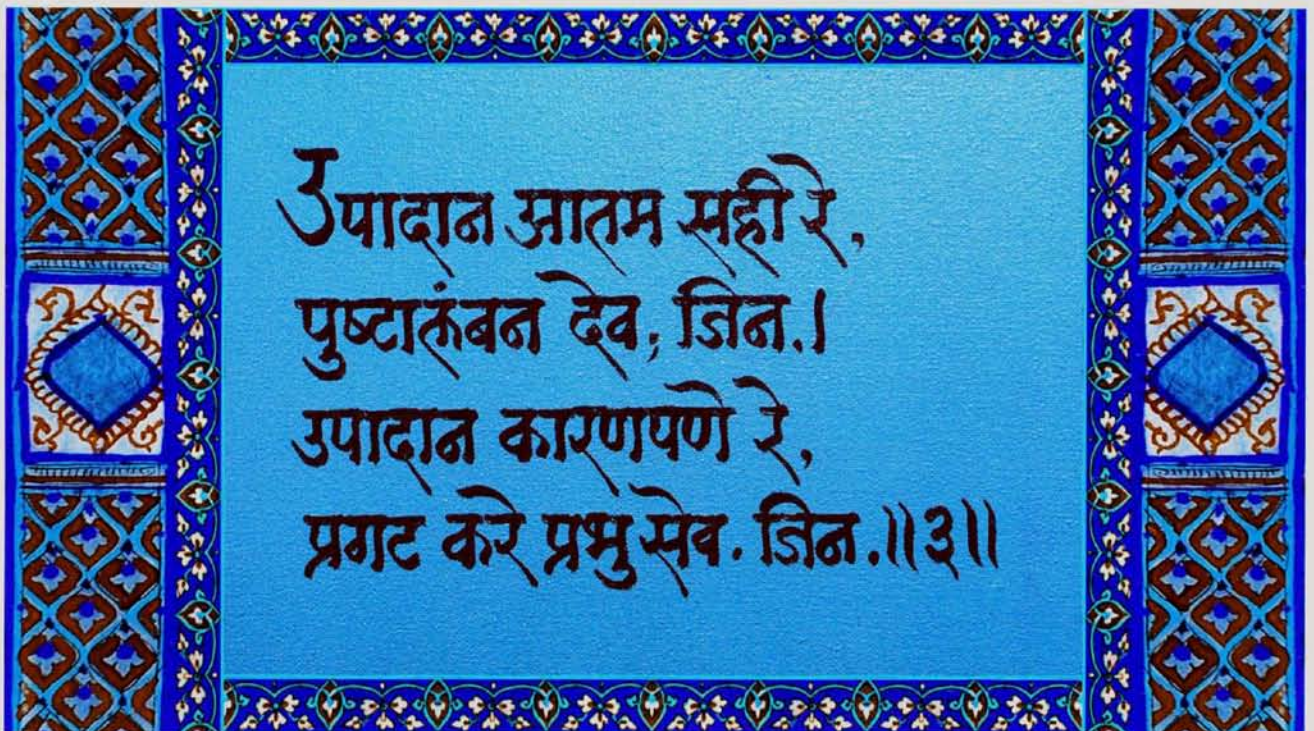 उपादान आतम सही रे,
पुष्टालंबन देव; जिन.।
उपादान कारणपणे रे,
प्रगट करे प्रभु सेव. जिन.॥३॥